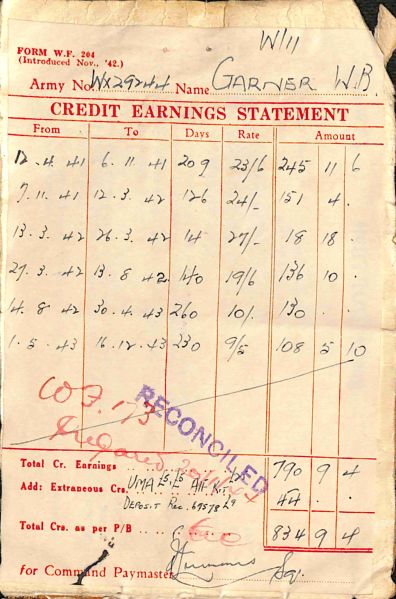 W/11
FORM W.F. 204
(Introduced Nov., '42.)
Army No. WX29244 Name GARNER W.B.
CREDIT EARNINGS STATEMENT
From To Days Rate Amount
12. 4. 41 6. 11. 41 209 23/6 245 11 6
7. 11. 41 12. 3. 42 126 24/- 151 4 .
13. 3. 42 26. 3. 42 14 27/- 18 18 .
27. 3. 42 13. 8. 42 140 19/6 136 10 .
14. 8. 42 30. 4. 43 260 10/. 130 .
1. 5. 43 16. 12. 43 230 9/5 108 5 10
RECONCILED
Prepared
Total Cr. Earnings 790 9 4
Add: Extraneous Crs. UMA £5, £5 44 .
DEPOSIT Rec. 69578 £9
Total Crs. as per P/B 834 9 4
for Command Paymaster